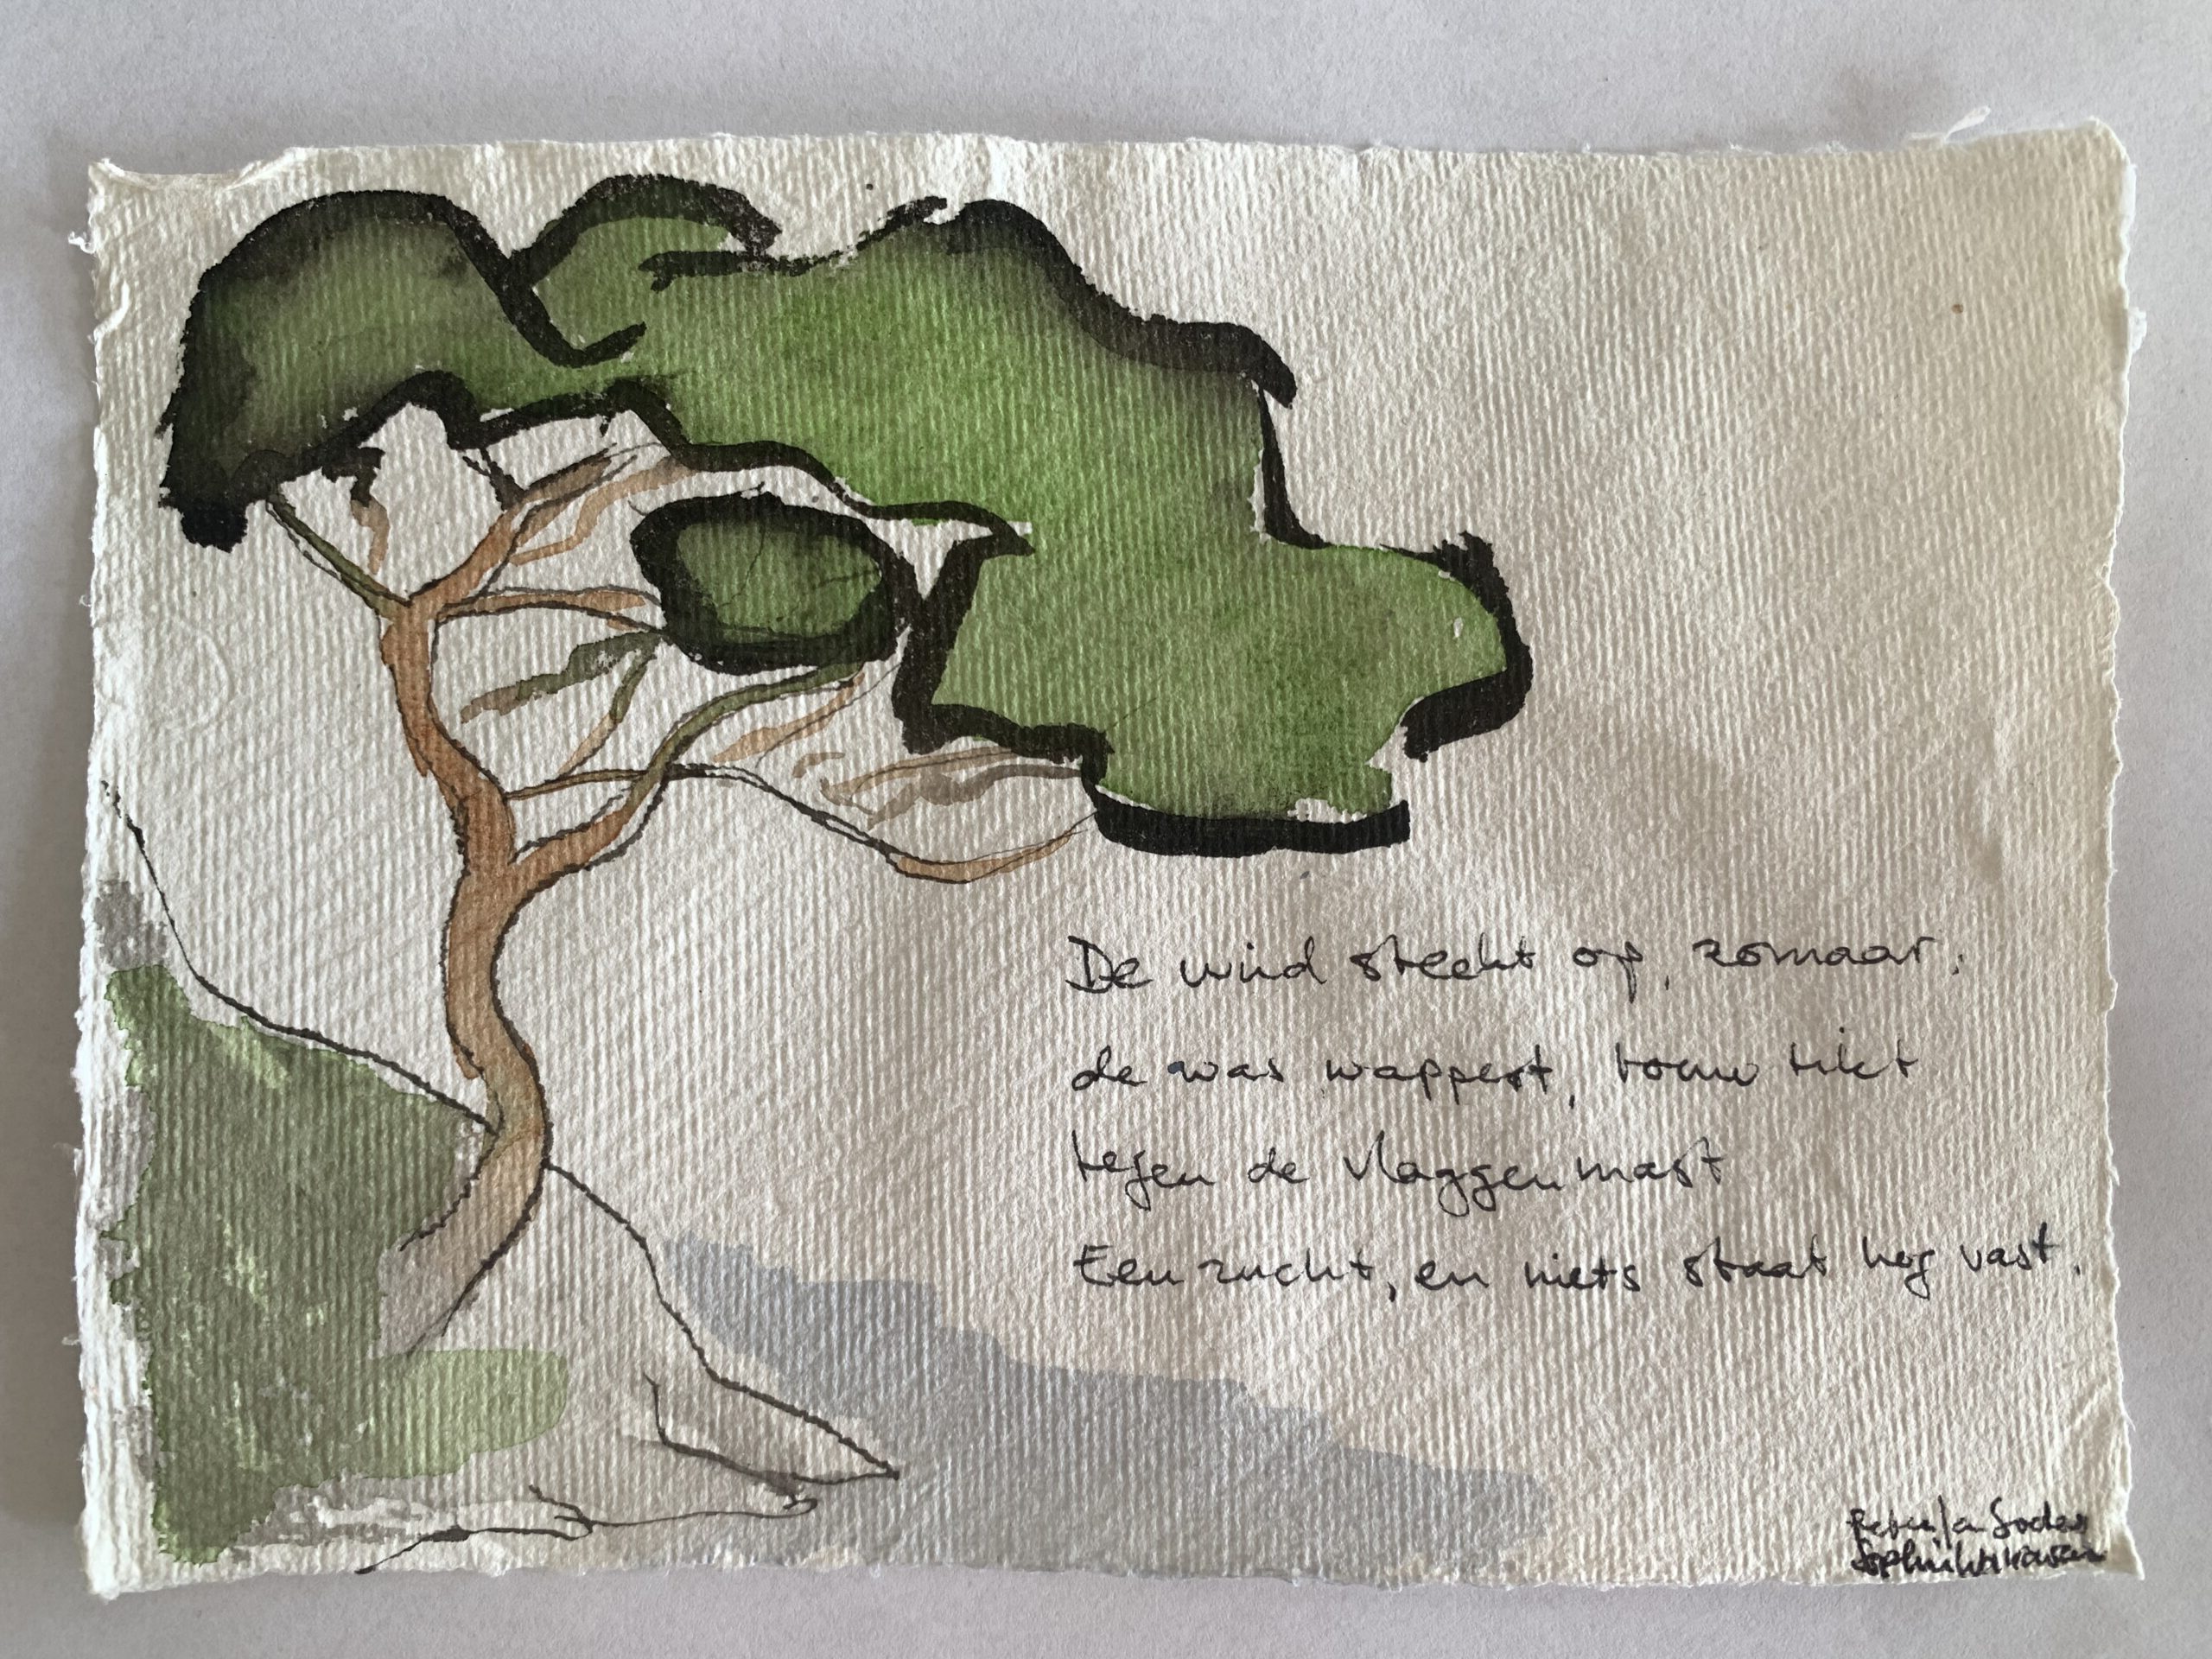 De wind steekt op, zomaar.
de was wappert, touw tikt
tegen de vlaggenmast
Een zucht, en niets staat nog vast.